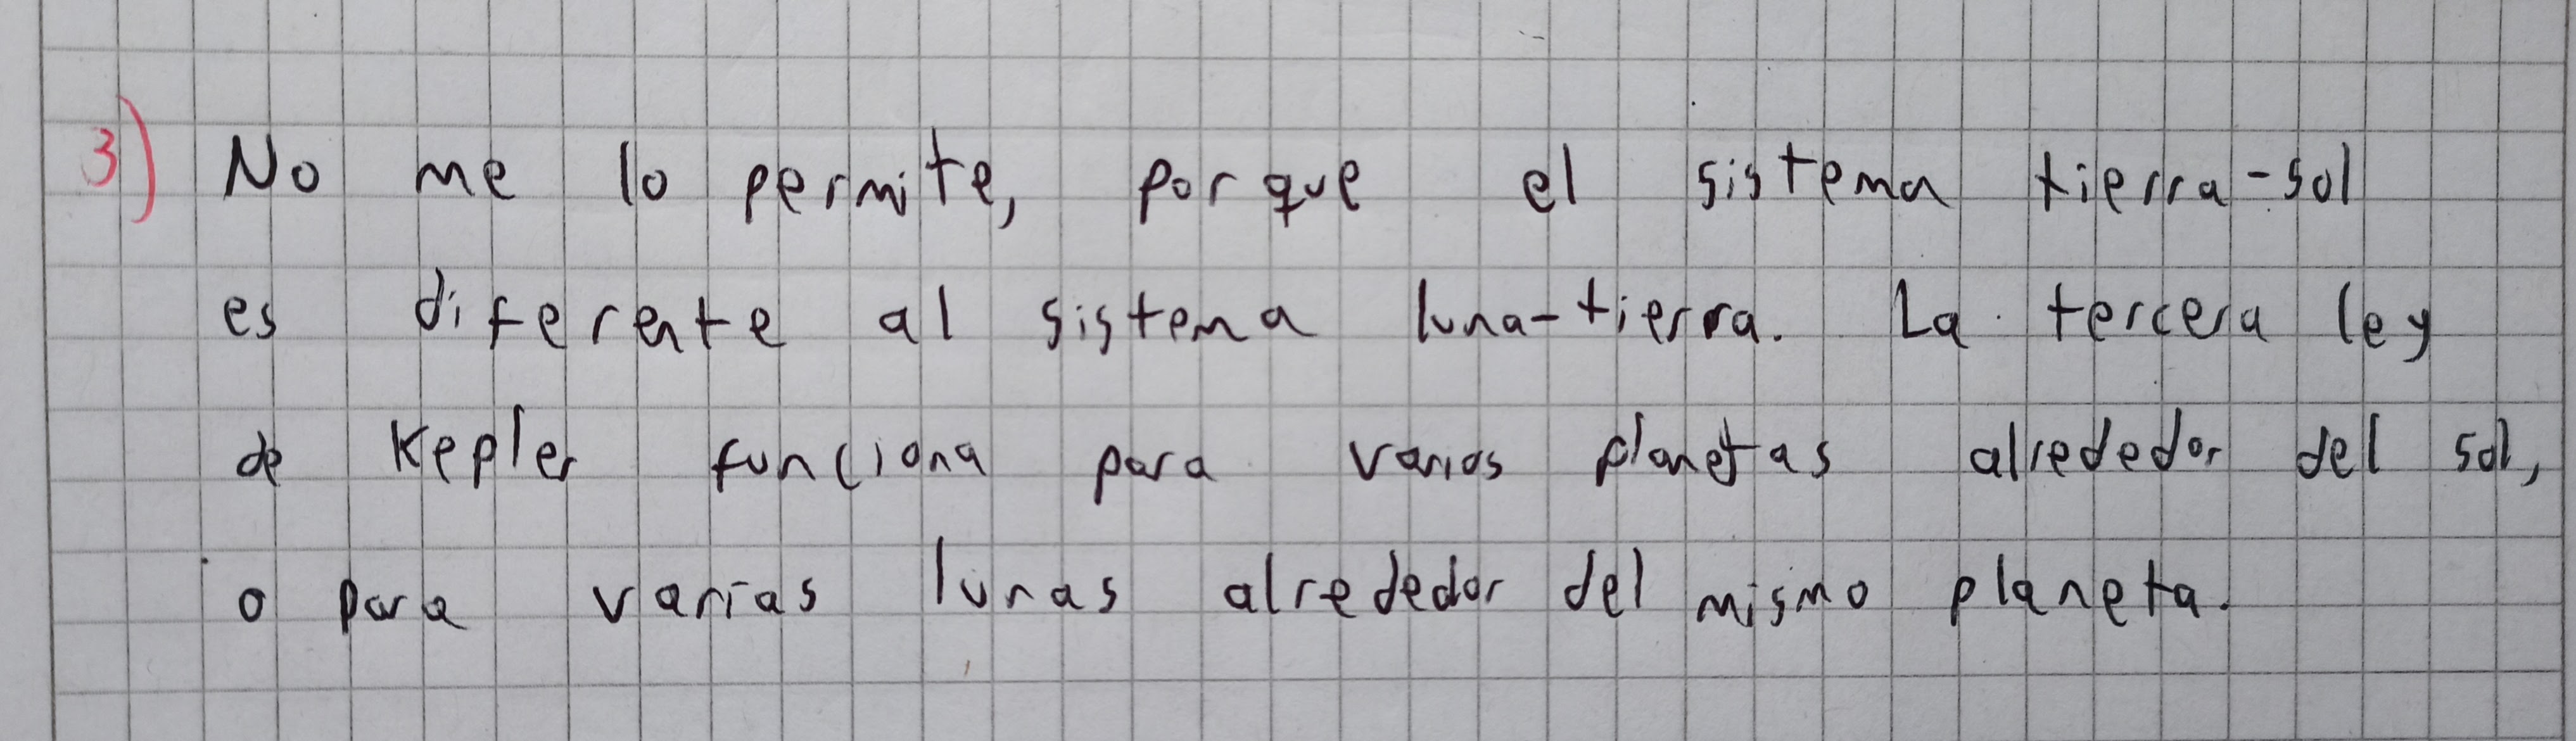 3) No me lo permite, porque el sistema tierra-sol
es diferente al sistema luna-tierra. La tercera ley
de Kepler funciona para varios planetas alrededor del sol,
o para varias lunas alrededor del mismo planeta.